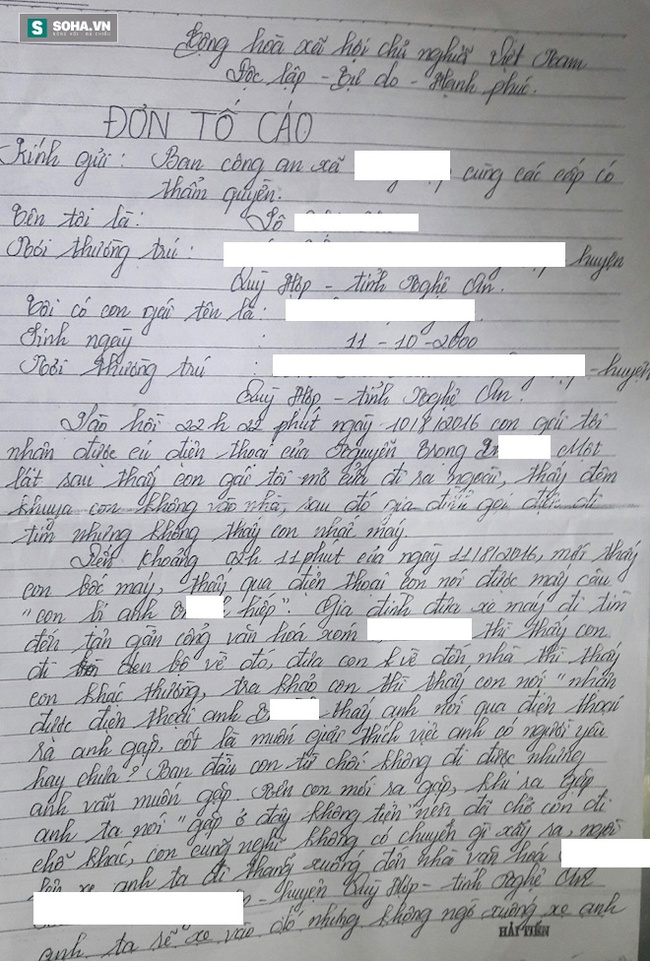 SOHA.VN
Cộng hoà xã hội chủ nghĩa Việt Nam
Độc lập - Tự do - Hạnh phúc.
ĐƠN TỐ CÁO
Kính gửi: Ban công an xã cùng các cấp có
thẩm quyền.
Tên tôi là: Lô
Nơi thường trú: huyện
Quỳ Hợp - tỉnh Nghệ An.
Tôi có con gái tên là:
Sinh ngày : 11-10-2000
Nơi thường trú : -huyện
Quỳ Hợp - tỉnh Nghệ An.
Vào hồi 22h 22 phút ngày 10/8/2016 con gái tôi
nhận được cú điện thoại của Nguyễn Trọng Một
lát sau thấy con gái tôi mở cửa đi ra ngoài, thấy đêm
khuya con không vào nhà, sau đó gia đình gọi điện đi
tìm nhưng không thấy con nhấc máy.
Đến khoảng 11 phút của ngày 11/8/2016, mới thấy
con bốc máy, thấy qua điện thoại con nói được mấy câu
"con bị anh hiếp". Gia đình đưa xe máy đi tìm
đến tận gần cổng văn hoá xóm thì thấy con
đi bộ về đó, đưa con về đến nhà thì thấy
con khác thường, tra khảo con thì thấy con nói "nhận
được điện thoại anh thấy anh nói qua điện thoại
ra anh gặp, cốt là muốn giải thích việc anh có người yêu
hay chưa? Ban đầu con từ chối không đi được nhưng
anh vẫn muốn gặp. Nên con mới ra gặp, khi ra gặp
anh ta nói "gặp ở đây không tiện" nên đã chở con đi
chỗ khác, con cũng nghĩ không có chuyện gì xảy ra, ngồi
lên xe anh ta đi thẳng xuống đến nhà văn hoá
- huyện Quỳ Hợp - tỉnh Nghệ An
anh ta rẽ xe vào đó nhưng không ngó xuống xe anh
HẢI TIẾN